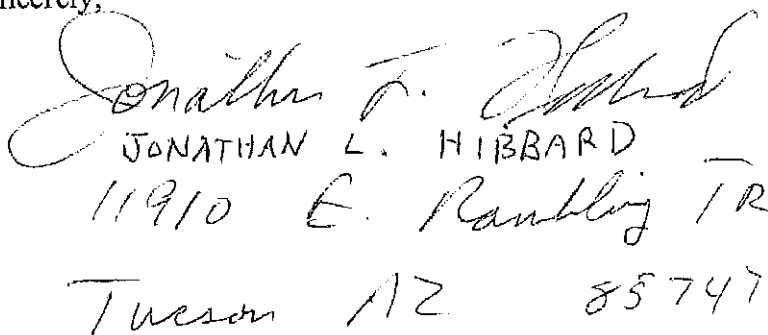 ncerely,
Jonathan L. Hibbard
JONATHAN L. HIBBARD
11910 E. Rambling TR
Tucson AZ 85747